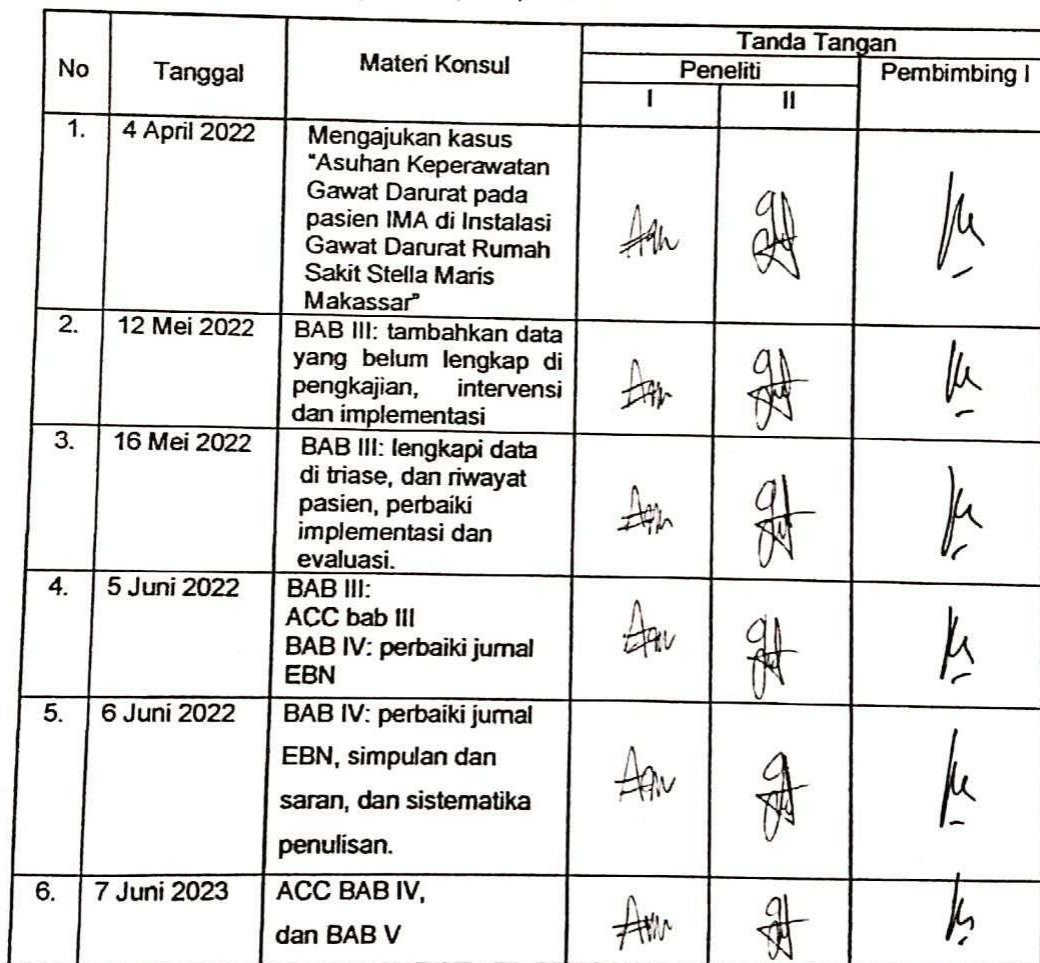 Tanda Tangan
No Tanggal Materi Konsul Peneliti Pembimbing I
I II
1. 4 April 2022 Mengajukan kasus
"Asuhan Keperawatan
Gawat Darurat pada
pasien IMA di Instalasi
Gawat Darurat Rumah
Sakit Stella Maris
Makassar"
2. 12 Mei 2022 BAB III: tambahkan data
yang belum lengkap di
pengkajian, intervensi
dan implementasi
3. 16 Mei 2022 BAB III: lengkapi data
di triase, dan riwayat
pasien, perbaiki
implementasi dan
evaluasi.
4. 5 Juni 2022 BAB III:
ACC bab III
BAB IV: perbaiki jurnal
EBN
5. 6 Juni 2022 BAB IV: perbaiki jurnal
EBN, simpulan dan
saran, dan sistematika
penulisan.
6. 7 Juni 2023 ACC BAB IV,
dan BAB V